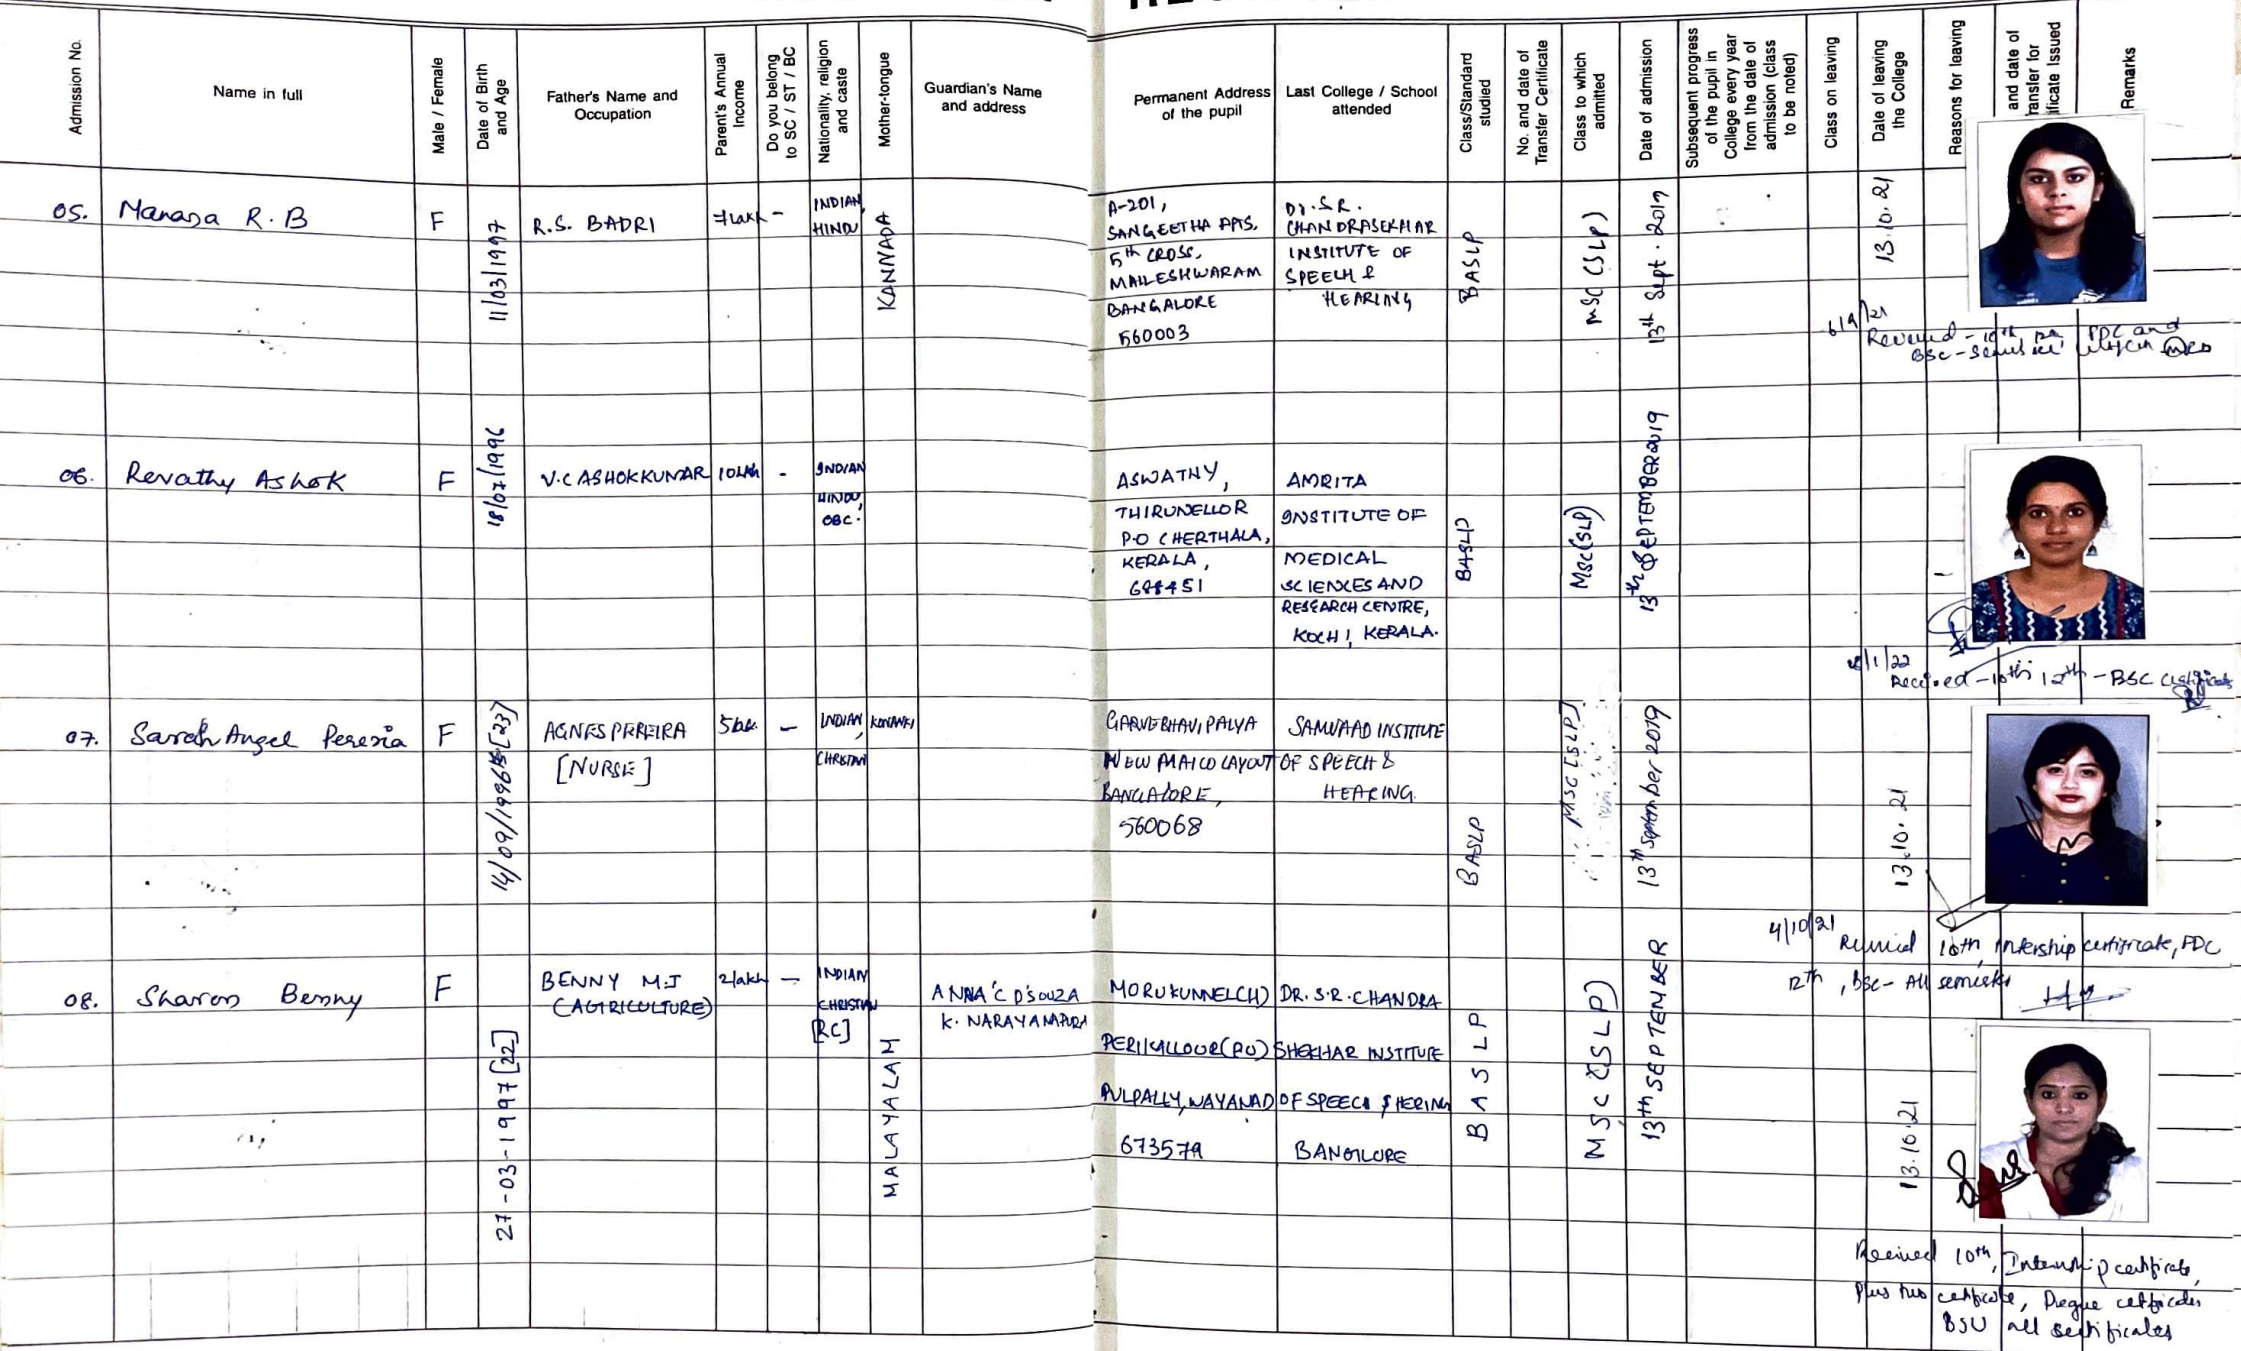 Admission No.
Name in full
Male / Female
Date of Birth
and Age
Father's Name and
Occupation
Parent's Annual
Income
Do you belong
to SC / ST / BC
Nationality, religion
and caste
Mother-tongue
Guardian's Name
and address
Permanent Address
of the pupil
Last College / School
attended
Class/Standard
studied
No. and date of
Transfer Certificate
Class to which
admitted
Date of admission
Subsequent progress
of the pupil in
College every year
from the date of
admission (class
to be noted)
Class on leaving
Date of leaving
the College
Reasons for leaving
and date of
Remarks
05.
Manasa R.B
F
11/03/1997
R.S. BADRI
7 lakh -
INDIAN,
HINDU
KANNADA
A-201,
SANGEETHA APTS,
5th CROSS,
MALLESHWARAM
BANGALORE
560003
Dr. S.R.
CHANDRASEKHAR
INSTITUTE OF
SPEECH &
HEARING
BASLP
MSC (SLP)
13th Sept. 2019
13.10.21
6/9/21
06.
Revathy Ashok
F
18/07/1996
V.C ASHOKKUMAR
10 Lakh
-
INDIAN
HINDU,
OBC.
ASWATHY,
THIRUNELLOR
P.O CHERTHALA,
KERALA,
688451
AMRITA
INSTITUTE OF
MEDICAL
SCIENCES AND
RESEARCH CENTRE,
KOCHI, KERALA.
BASLP
MSC (SLP)
13th SEPTEMBER 2019
1/22
Received - 10th 12th - BSC Certificates
07.
Sarah Angel Pereria
F
14/09/1996 [23]
AGNES PEREIRA
[NURSE]
5 lak
-
INDIAN,
CHRISTIAN
KONANKI
GARVEBHAVI PALYA
NEW MAICO LAYOUT
BANGALORE,
560068
SAMVAAD INSTITUTE
OF SPEECH &
HEARING.
BASLP
MSC [SLP]
13th September 2019
13.10.21
4/10/21
10th, Intership certificate, PDC
12th, BSC - All
08.
Sharon Benny
F
27-03-1997 [22]
BENNY M.J
(AGTRICULTURE)
2 lakh
-
INDIAN
CHRISTIAN
[RC]
MALAYALAM
ANNA C D'SOUZA
K. NARAYANAPURA
MORUKUNNEL(H)
PERIKALLOUR(PO)
PULPALLY, WAYANAD
673579
DR. S.R. CHANDRA
SHEKHAR INSTITUTE
OF SPEECH & HERING
BANGLORE
BASLP
MSC (SLP)
13th SEPTEMBER
13.10.21
Received 10th, Internship certificate,
Plus two certificate, Degree certficates
BSU all certificates